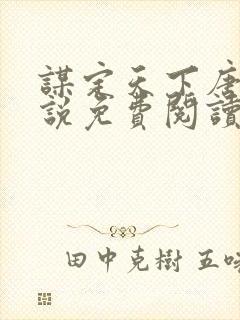 謀定天下唐
說免費閱讀
田中克樹 五